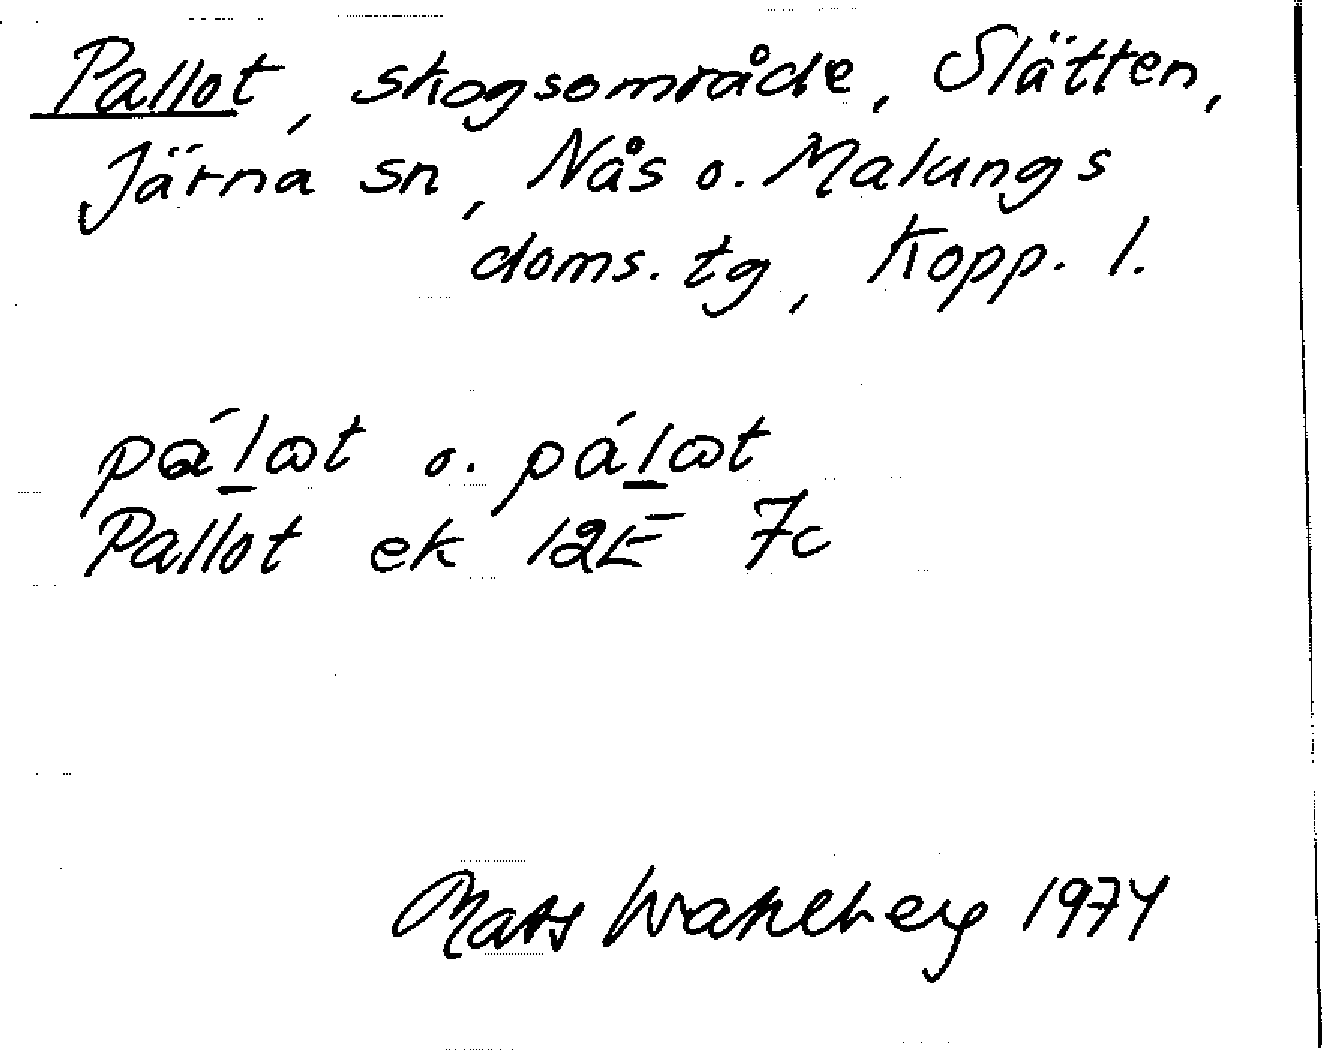 Pallot, skogsområde, Slätten,
Järna sn, Nås o. Malungs
doms. tg, Kopp. l.
pál̲ωt o. pál̲ωt
Pallot ek 12E 7c
Mats Wahlberg 1974